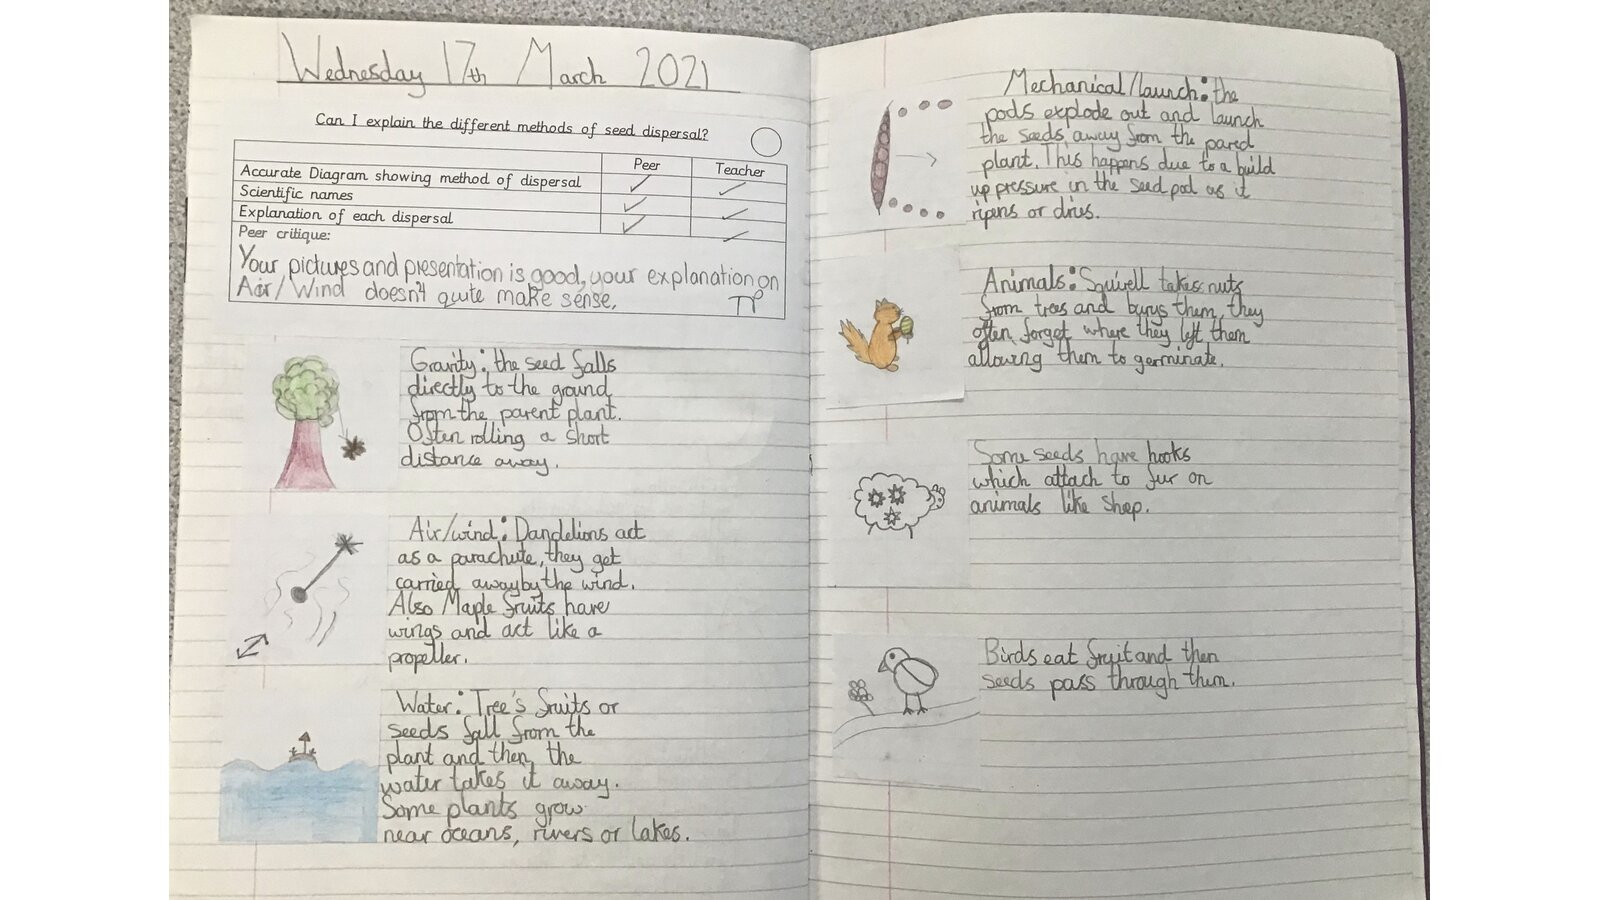 Wednesday 17th March 2021
Can I explain the different methods of seed dispersal?
Peer Teacher
Accurate Diagram showing method of dispersal
Scientific names
Explanation of each dispersal
Peer critique:
Your pictures and presentation is good, your explanation on
Air/Wind doesn't quite make sense.
Gravity: the seed falls
directly to the ground
from the parent plant.
Often rolling a short
distance away.
Air/wind: Dandelions act
as a parachute, they get
carried away by the wind.
Also Maple fruits have
wings and act like a
propeller.
Water: Tree's fruits or
seeds fall from the
plant and then, the
water takes it away.
Some plants grow
near oceans, rivers or lakes.
Mechanical/launch: the
pods explode out and launch
the seeds away from the pared
plant. This happens due to a build
up pressure in the seed pod as it
ripens or dries.
Animals: Squirell takes nuts
from trees and burys them, they
often forget where they left them
allowing them to germinate.
Some seeds have hooks
which attach to fur on
animals like shep.
Birds eat fruit and then
seeds pass through them.